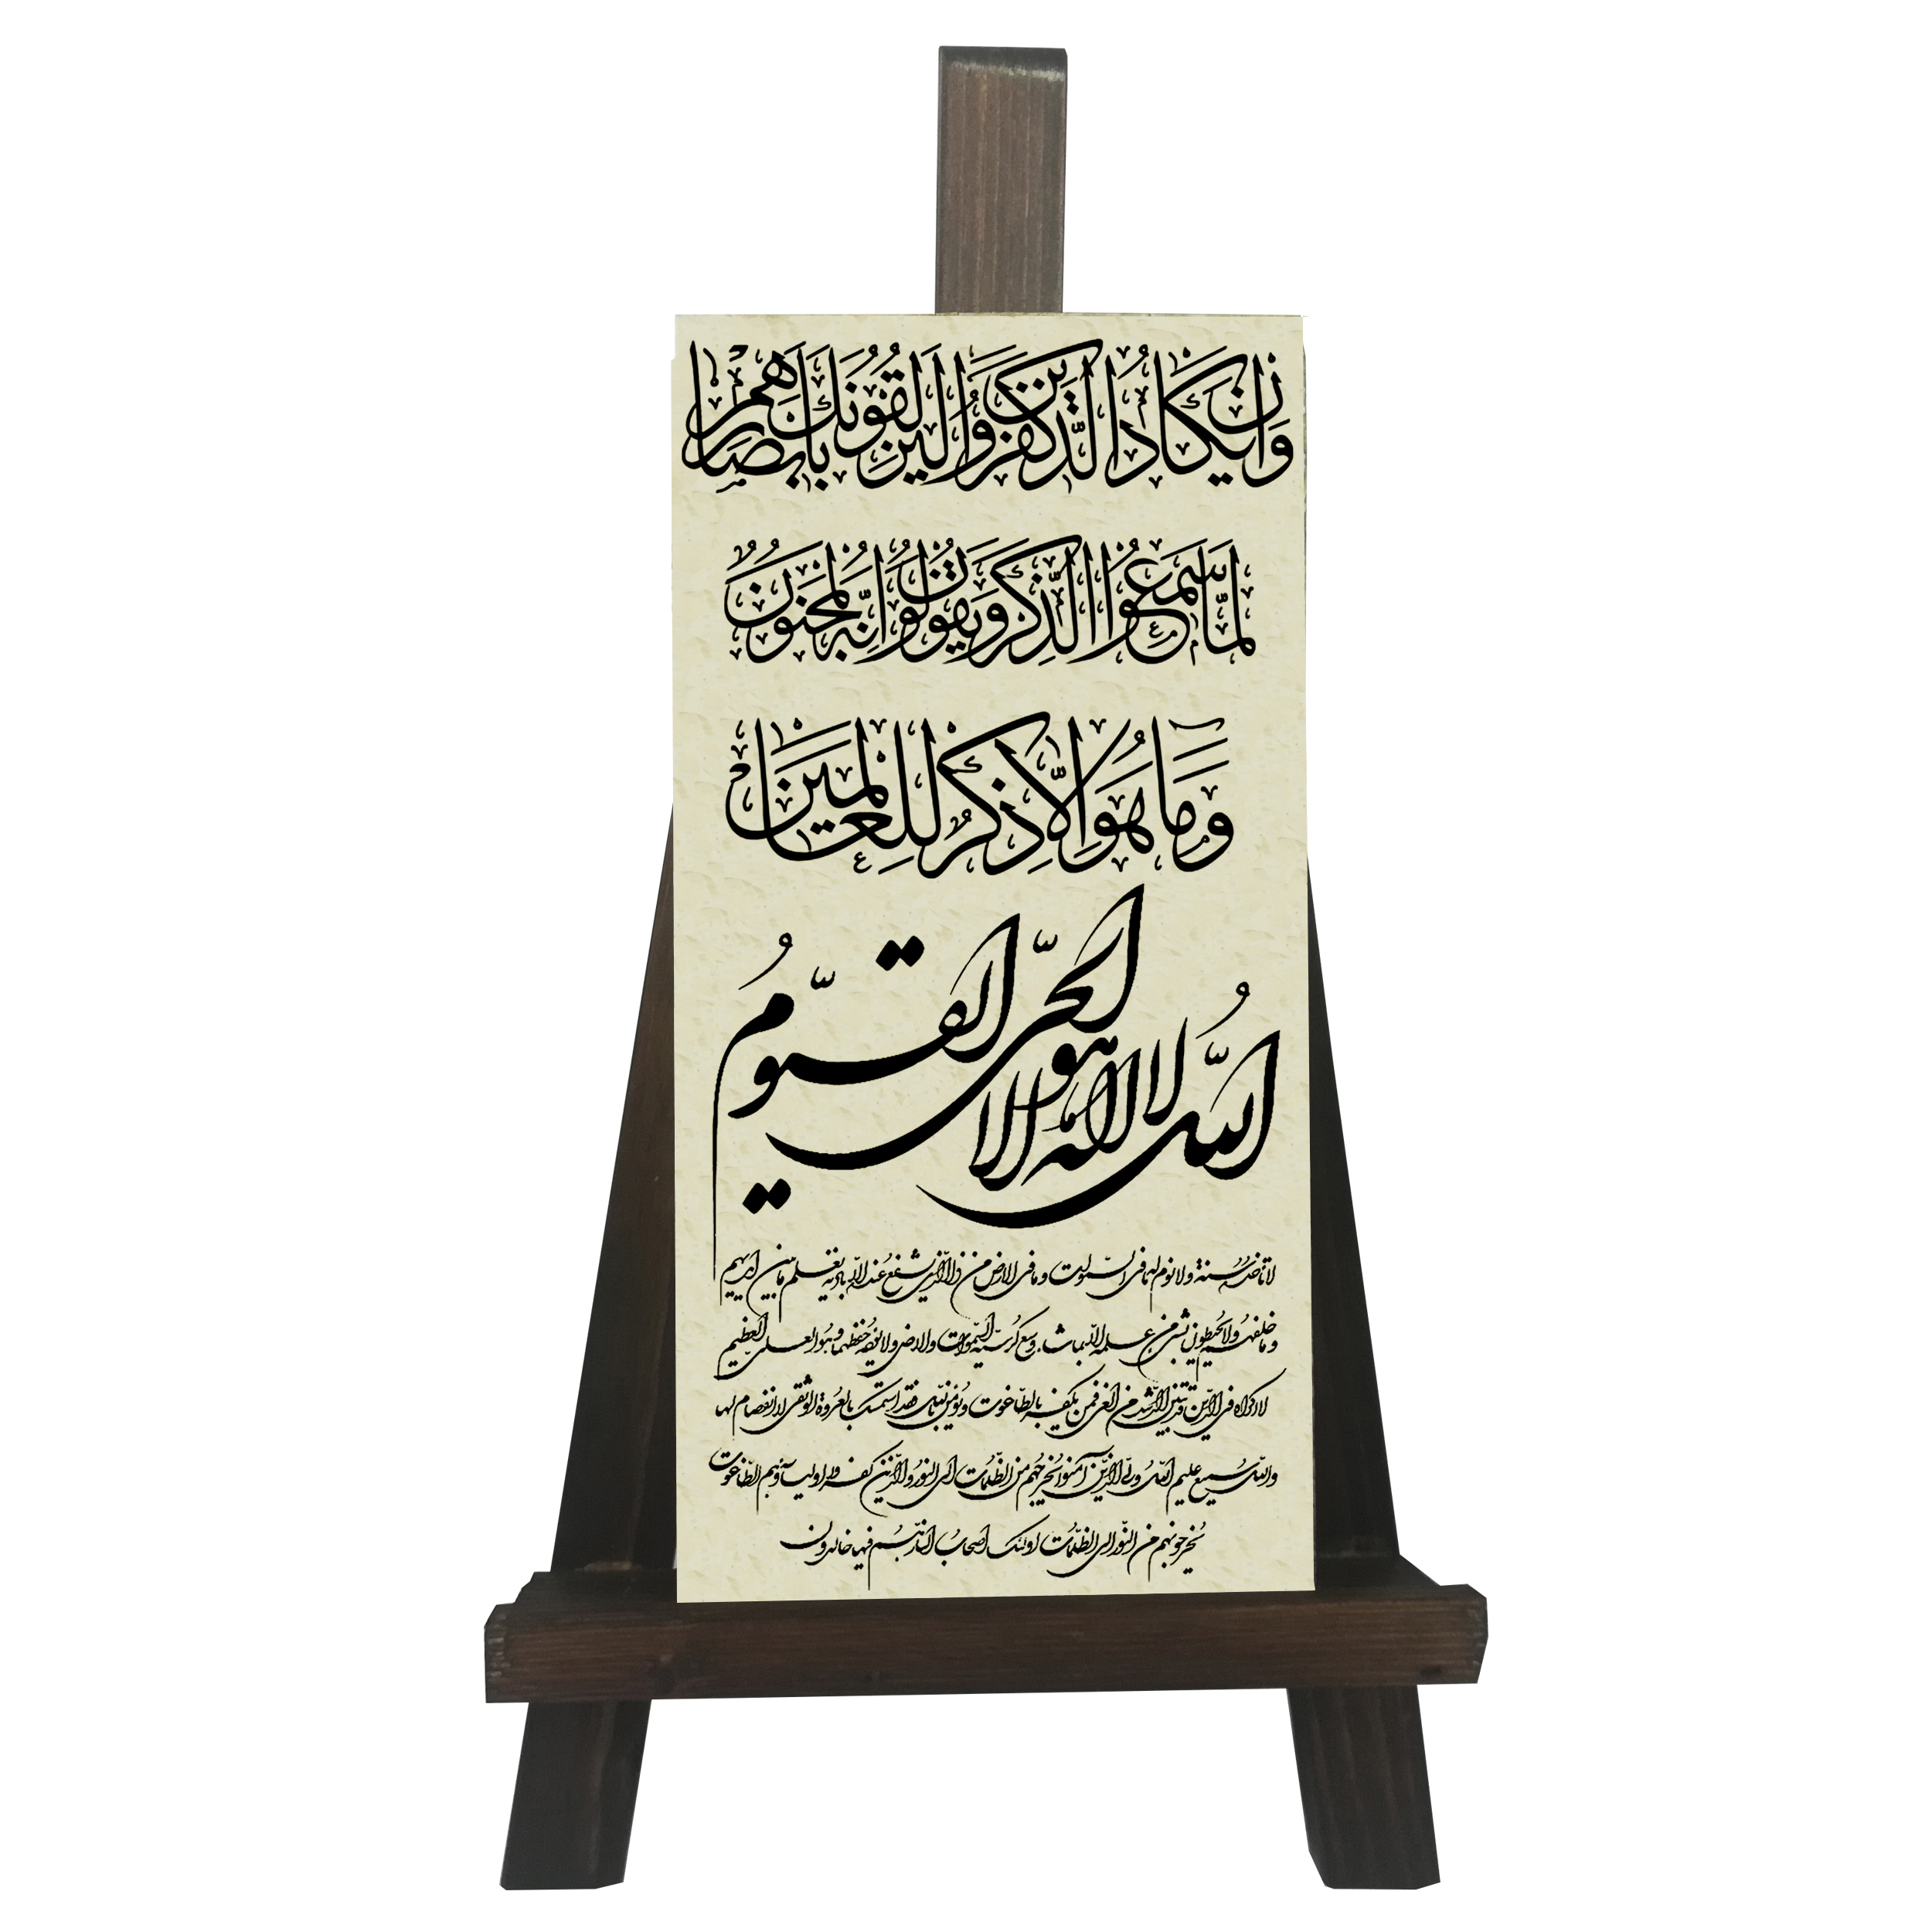 وَإِن يَكَادُ الَّذِينَ كَفَرُوا لَيُزْلِقُونَكَ بِأَبْصَارِهِمْ
لَمَّا سَمِعُوا الذِّكْرَ وَيَقُولُونَ إِنَّهُ لَمَجْنُونٌ
وَمَا هُوَ إِلَّا ذِكْرٌ لِلْعَالَمِينَ
اللّهُ لا اله الا هو الحیّ القیّومُ
لا تاخذه سنة ولا نوم له ما فی السموات و ما فی الارض من ذا الذی یشفع عنده الا باذنه یعلم ما بین ایدیهم
و ما خلفهم ولا یحیطون بشیء من علمه الا بما شاء وسع کرسیه السموات والارض ولا یؤده حفظهما و هو العلی العظیم
لا اکراه فی الدین قد تبین الرشد من الغی فمن یکفر بالطاغوت و یؤمن بالله فقد استمسک بالعروة الوثقی لا انفصام لها
والله سمیع علیم الله ولی الذین آمنوا یخرجهم من الظلمات الی النور والذین کفروا اولیاؤهم الطاغوت
یخرجونهم من النور الی الظلمات اولئک اصحاب النار هم فیها خالدون